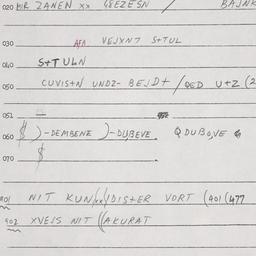 020 ZANEN xx GEEZESN BAJNK
030 AFA VEJXN7 S+TUL
040 S+TULN
050 CUVIS+N UNDZ- BEJD+ / QED U+Z (2
051
060 $ ) -DEMBENE )-DUBEVE. QDUBOVE
070 $
401 NIT KUN//DIS+ER VORT (401(477
402 XVEJS NIT ((AKURAT